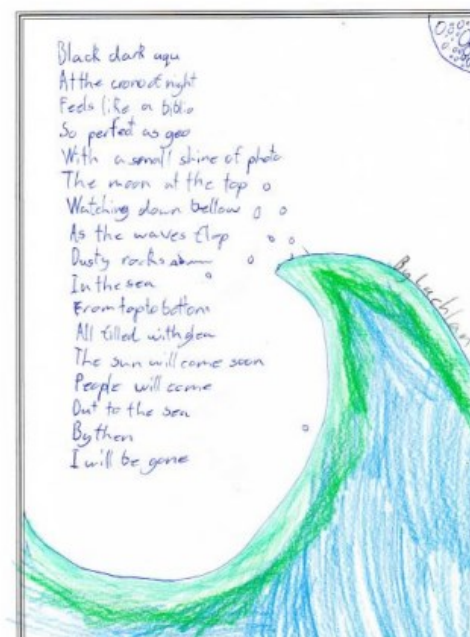 Black dark aqu
At the crono of night
Feels like a biblio
So perfect as geo
With a small shine of photo
The moon at the top
Watching down bellow
As the waves flap
Dusty rocks
In the sea
From top to bottom
All filled with
The sun will come soon
People will come
Out to the sea
By then
I will be gone
By Lachlan